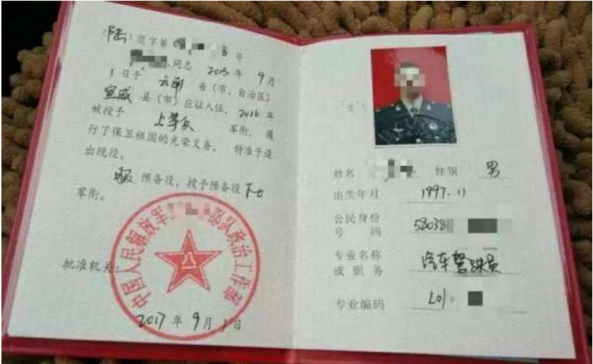 (陆)退字第0 号
同志 2015 年 9 月
1 日于 云南 省(市、自治区)
宣威 县(市)应征入伍, 2016 年
被授予 上等兵 军衔, 履
行了保卫祖国的光荣义务, 特准予退
出现役。
服 预备役, 授予预备役 下士
军衔。
批准机关:
中国人民解放军 部队政治工作部
八一
2017 年 9 月 1 日
姓名 性别 男
出生年月 1997.11
公民身份
号码 530381
专业名称
或职务 汽车驾驶员
专业编码 201